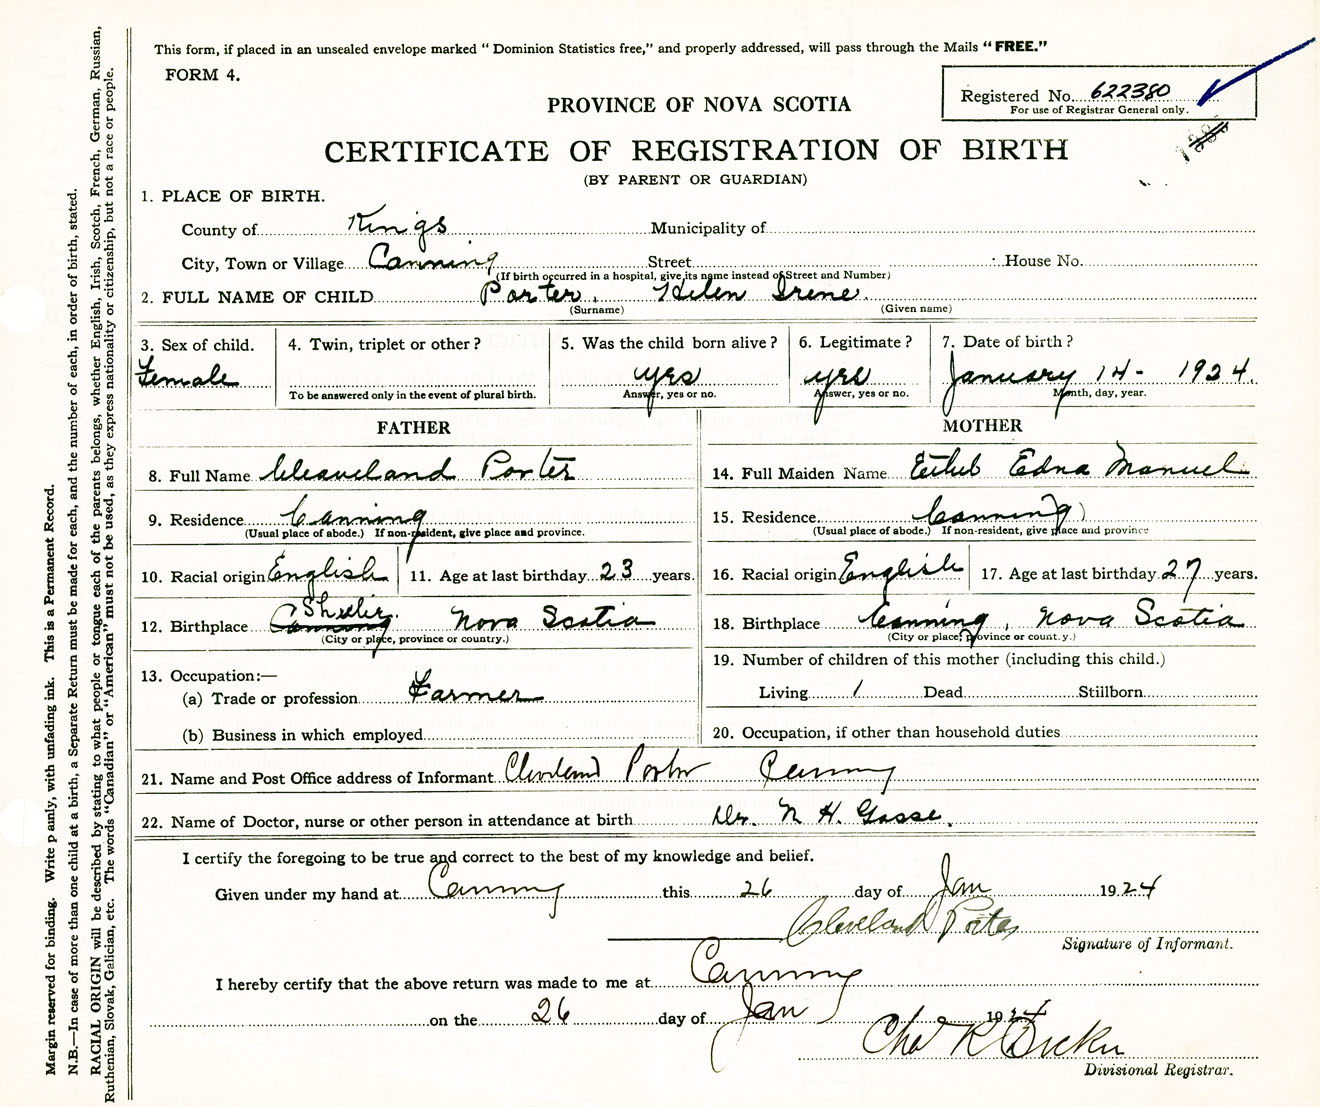 This form, if placed in an unsealed envelope marked "Dominion Statistics free," and properly addressed, will pass through the Mails "FREE."
FORM 4.
Registered No. 622380
For use of Registrar General only.
PROVINCE OF NOVA SCOTIA
CERTIFICATE OF REGISTRATION OF BIRTH
(BY PARENT OR GUARDIAN)
1. PLACE OF BIRTH.
County of Kings Municipality of
City, Town or Village Canning Street House No.
(If birth occurred in a hospital, give its name instead of Street and Number)
2. FULL NAME OF CHILD Porter, Helen Irene.
(Surname) (Given name)
3. Sex of child. 4. Twin, triplet or other? 5. Was the child born alive? 6. Legitimate? 7. Date of birth?
Female yes yes January 14- 1924.
To be answered only in the event of plural birth. Answer, yes or no. Answer, yes or no. Month, day, year.
FATHER
8. Full Name Cleaveland Porter
9. Residence Canning
(Usual place of abode.) If non-resident, give place and province.
10. Racial origin English 11. Age at last birthday 23 years.
12. Birthplace Canning Nova Scotia
(City or place, province or country.)
13. Occupation:—
(a) Trade or profession Farmer
(b) Business in which employed
MOTHER
14. Full Maiden Name Ethel Edna Manuel
15. Residence Canning
(Usual place of abode.) If non-resident, give place and province
16. Racial origin English 17. Age at last birthday 27 years.
18. Birthplace Canning, Nova Scotia
(City or place, province or count.y.)
19. Number of children of this mother (including this child.)
Living 1 Dead Stillborn
20. Occupation, if other than household duties
21. Name and Post Office address of Informant Cleveland Porter Canning
22. Name of Doctor, nurse or other person in attendance at birth Dr. N H. Gosse.
I certify the foregoing to be true and correct to the best of my knowledge and belief.
Given under my hand at Canning this 26 day of Jan 1924
Cleveland Porter
Signature of Informant.
I hereby certify that the above return was made to me at Canning
on the 26 day of Jan 1924
Chas R
Divisional Registrar.
Margin reserved for binding. Write p ainly, with unfading ink. This is a Permanent Record.
N.B.—In case of more than one child at a birth, a Separate Return must be made for each, and the number of each, in order of birth, stated.
RACIAL ORIGIN will be described by stating to what people or tongue each of the parents belongs, whether English, Irish, Scotch, French, German, Russian,
Ruthenian, Slovak, Galician, etc. The words "Canadian" or "American" must not be used, as they express nationality or citizenship, but not a race or people.